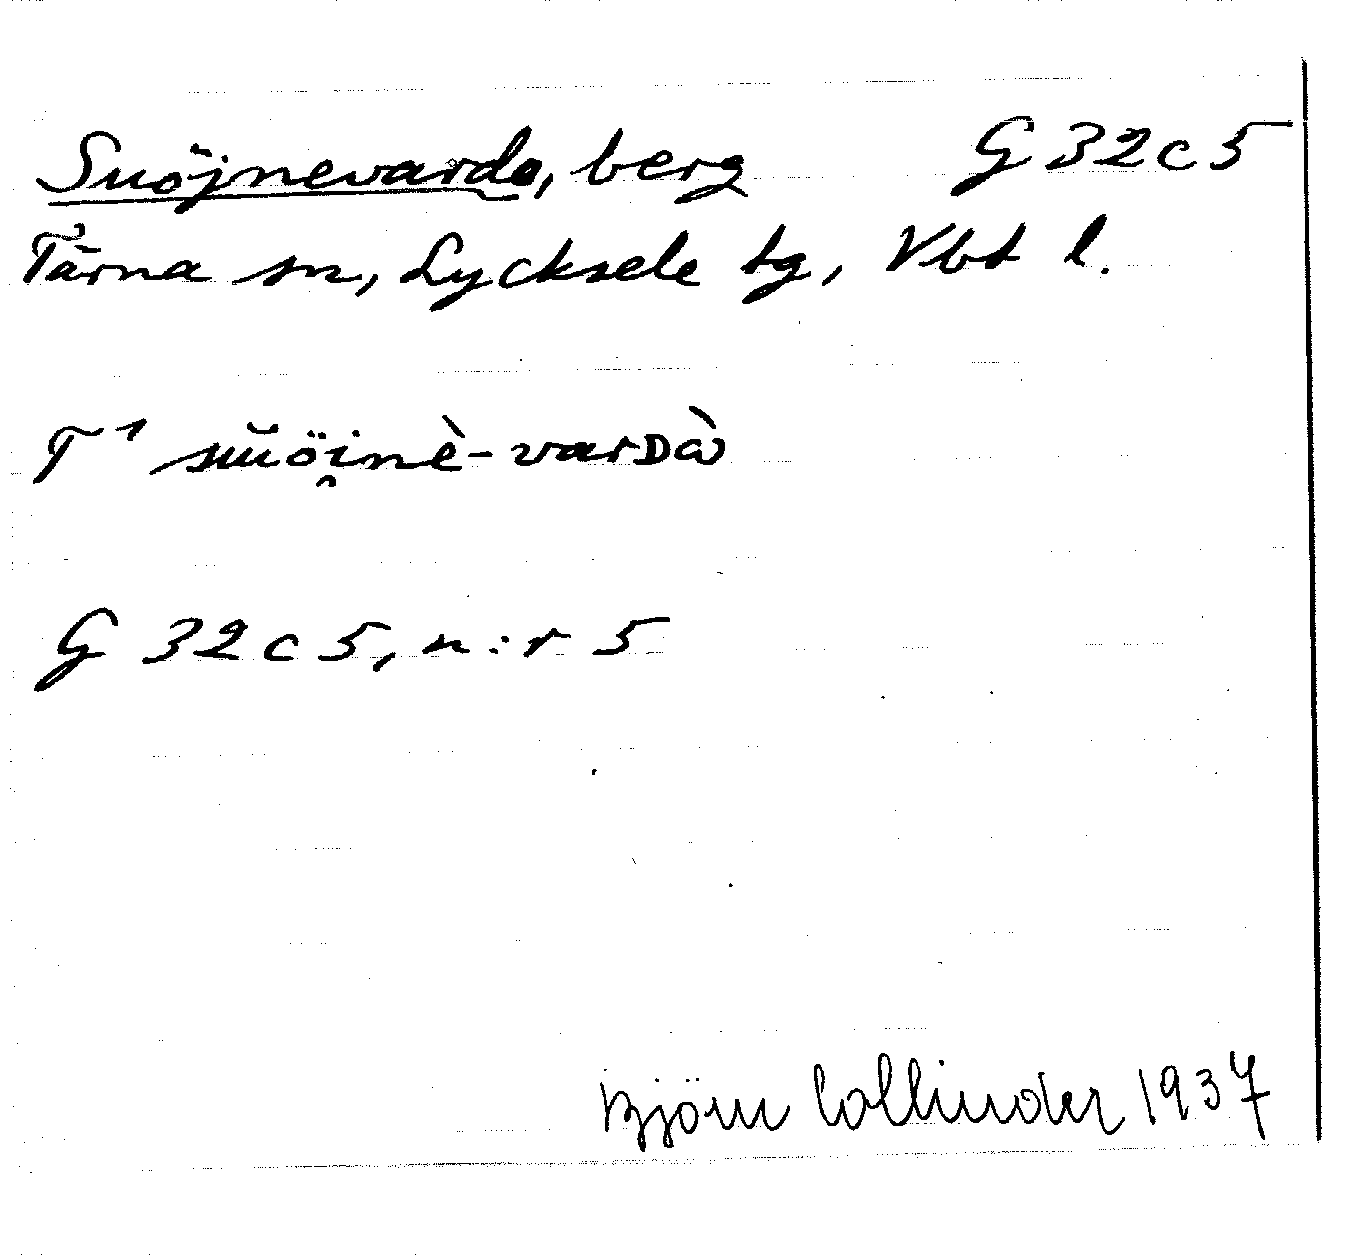 Suöjnevardo, berg G 32 c 5
Tärna sn, Lycksele tg, Vbt l.
T¹ sŭöi̯nè-varᴅà
G 32 c 5, n:r 5
Björn Collinder 1937